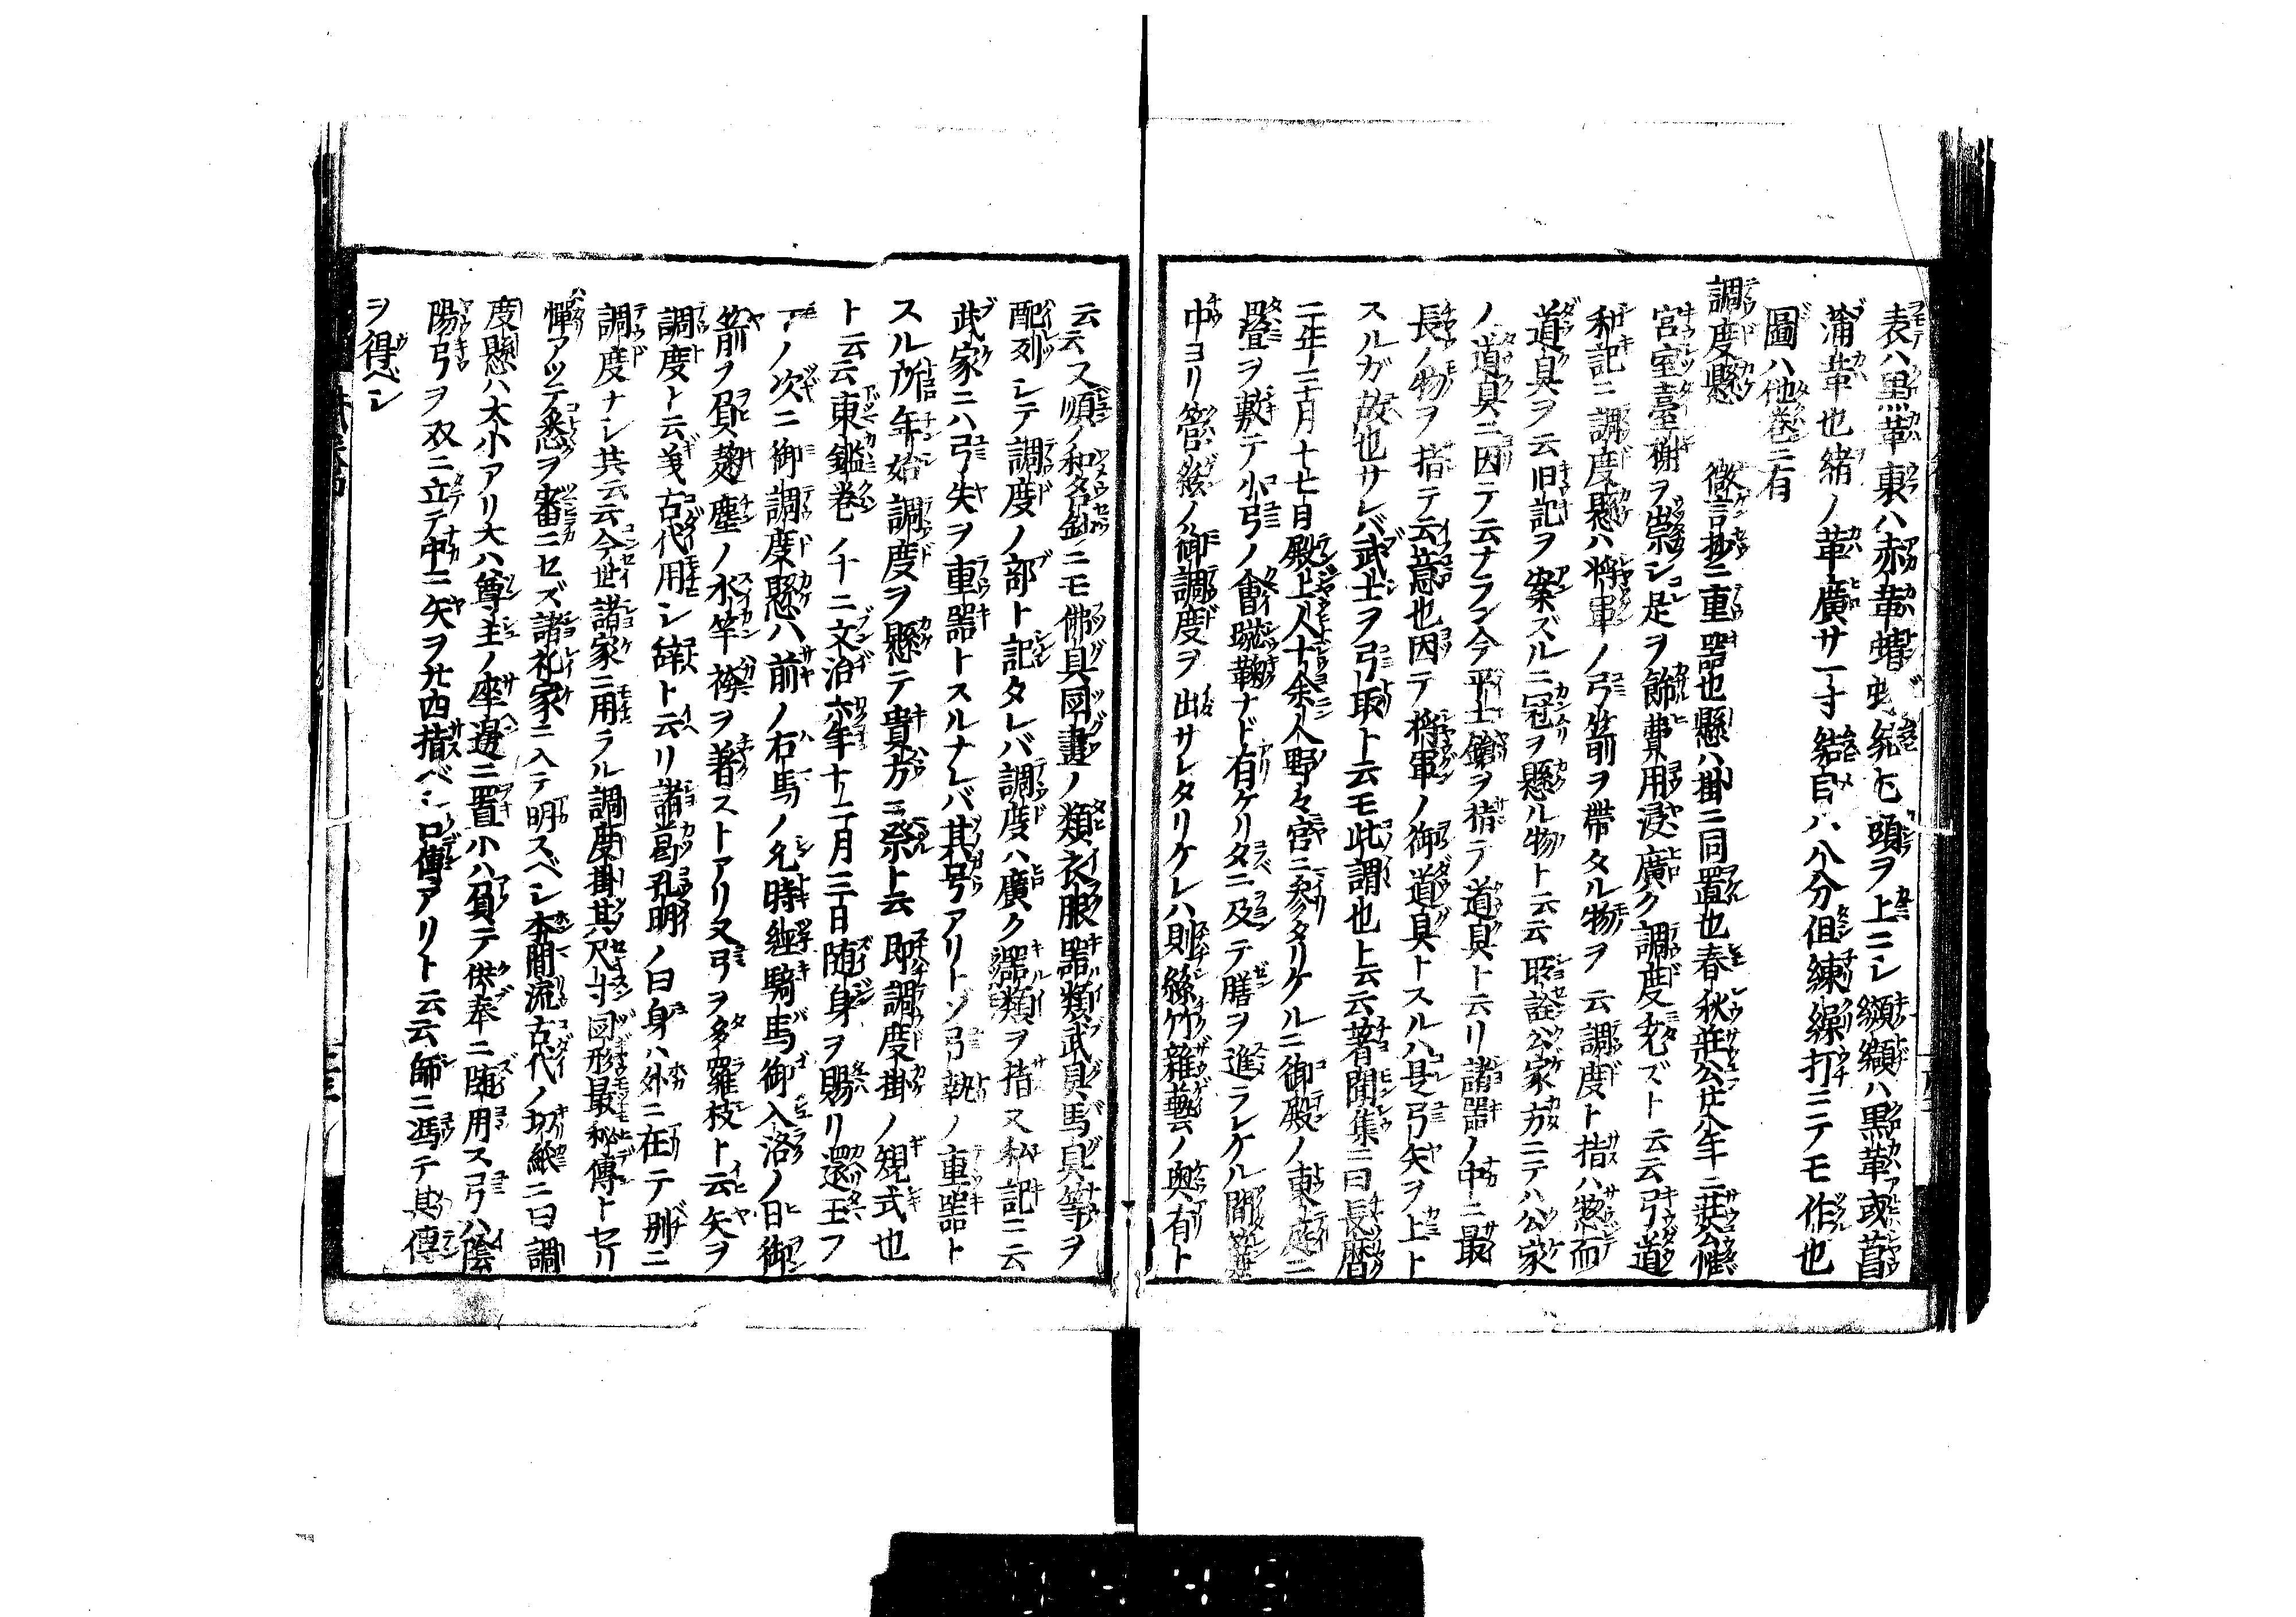 表ハ黒革裏ハ赤革蜻蛉結ヒ頭ヲ上ニシ纐纈ハ黒革或菖
蒲革也緒ノ革廣サ一寸結目ハ八分但練繰打ニテモ作也
圖ハ他巻ニ有
調度懸 微言抄ニ重器也懸ハ掛ニ同置也春秋莊公廿八年ニ莊公惟
宮室臺榭ヲ崇シ是ヲ飾費用浸廣ク調度充ズト云云弓道
私記ニ調度懸ハ将軍ノ弓箭ヲ帯タル物ヲ云調度ト指ハ惣而
道具ヲ云旧記ヲ案ズルニ冠ヲ懸ル物ト云云所詮公家方ニテハ公家
ノ道具ニ因テ云ナラン今平士鎗ヲ指テ道具ト云リ諸器ノ中ニ最
長ノ物ヲ指テ云意也因テ将軍ノ御道具トスルハ是弓矢ヲ上ト
スルガ故也サレバ武士ヲ弓取ト云モ此謂也ト云云著聞集ニ曰長暦
二年三月十七日殿上人十余人野々宮ニ参タリケルニ御殿ノ東庭ニ
畳ヲ敷テ小弓ノ會蹴鞠ナド有ケリタニ及テ膳ヲ進ラレケル間簾
中ヨリ管絃ノ御調度ヲ出サレタリケレハ則絲竹雜藝ノ輿有ト
云云ス順ノ和名鈔ニモ佛具図畫ノ類衣服器類武具馬具等ヲ
配列シテ調度ノ部ト記タレバ調度ハ廣ク器類ヲ指又私記ニ云
武家ニハ弓矢ヲ重器トスルナレバ其号アリトゾ弓執ノ重器ト
スル所年始調度ヲ懸テ貴方ニ祭ト云即調度掛ノ規式也
ト云云東鑑巻ノ十ニ文治六年十二月三日随身ヲ賜リ還玉フ
ノ次ニ御調度懸ハ前ノ右馬ノ允時経騎馬御入洛ノ日御
箭ヲ負麹塵ノ水竿袴ヲ著ストアリ又弓ヲ多羅枝ト云矢ヲ
調度ト云義古代用シ辞ト云リ諸葛孔明ノ曰身ハ外ニ在テ別ニ
調度ナシ共云云今世諸家ニ用ラル調度掛其尺寸図形最秘傳トセリ
憚アツテ悉ヲ審ニセズ諸礼家ニ入テ明スベシ本間流古代ノ切紙ニ曰調
度懸ハ大小アリ大ハ尊主ノ座邉ニ置小ハ負テ供奉ニ随用ス弓ハ陰
陽弓ヲ双ニ立テ中ニ矢ヲ廿四指ベシ口傳アリト云云師ニ馮テ其傳
ヲ得ベシ